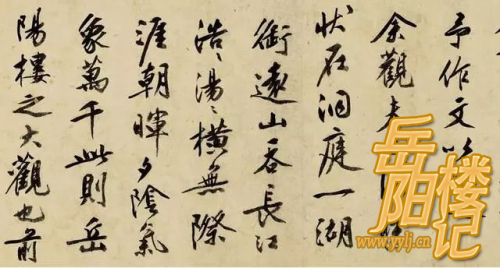 予作文以
余觀夫
状在洞庭一湖
銜遠山吞長江
浩〻湯〻橫無際
涯朝暉夕陰氣
象萬千此則岳
陽樓之大觀也前
岳阳楼记
www.yylj.cn